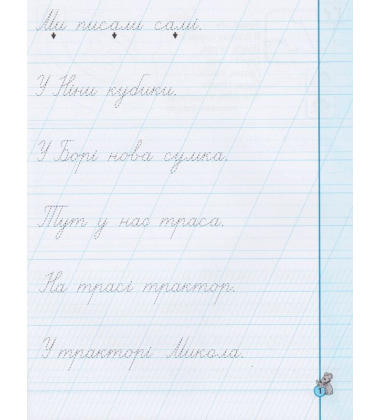 Ми писали самі.
У Ніни кубики.
У Борі нова сумка.
Тут у нас траса.
На трасі трактор.
У тракторі Микола.
1